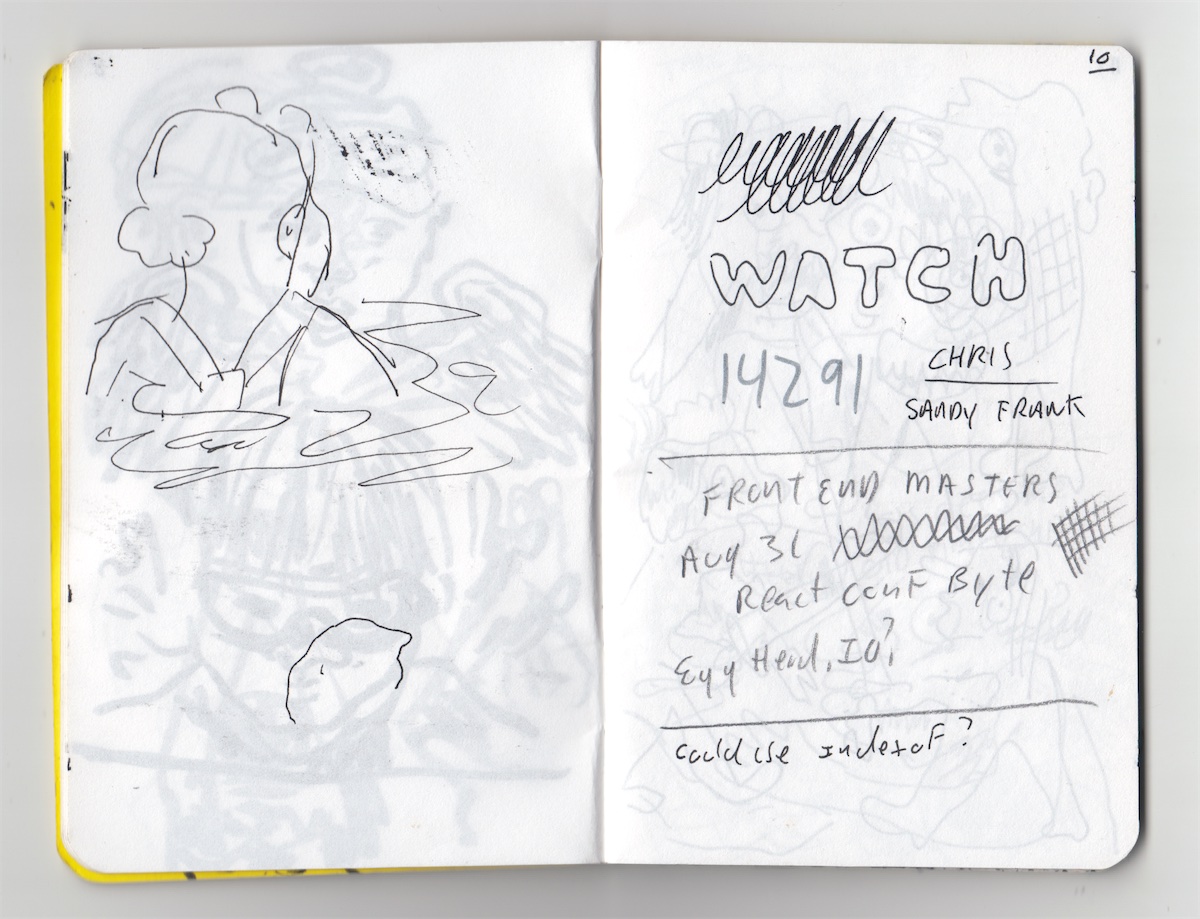 10
WATCH
14291
CHRIS
SANDY FRANK
FRONT END MASTERS
Aug 31
React conf Byte
Egg Head, IO?
could use indexof?